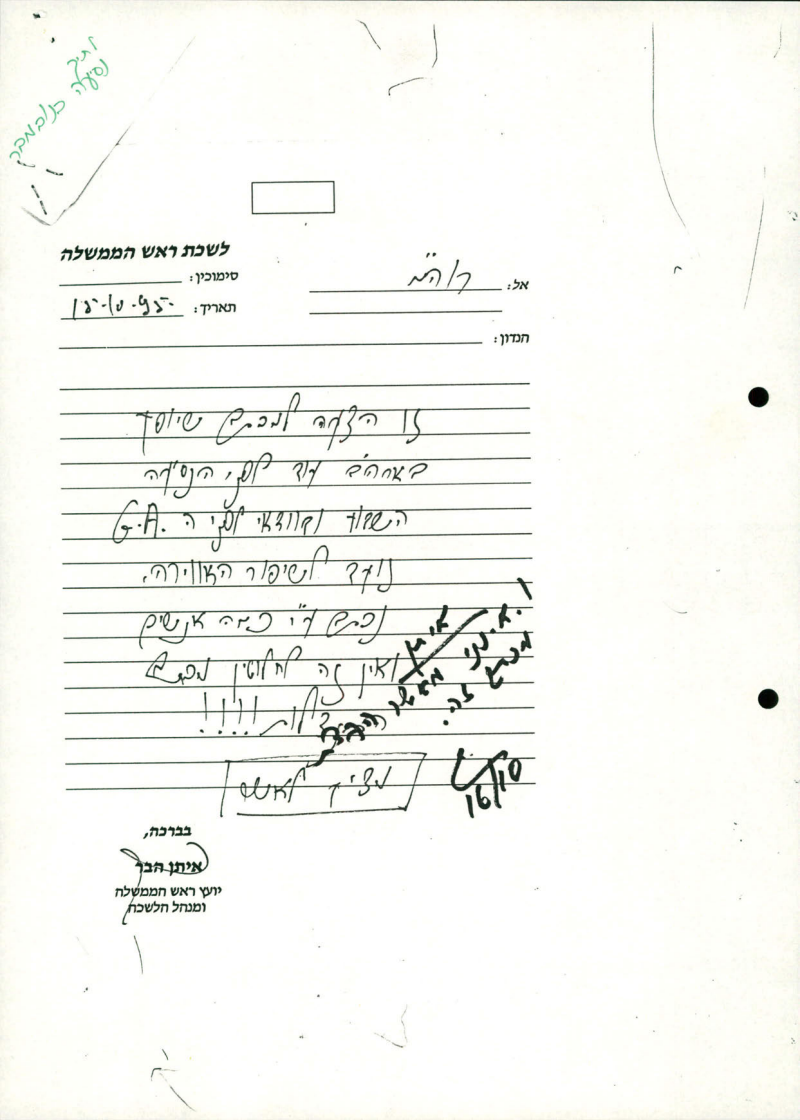 לתיק
נסיעה
בנובמבר
לשכת ראש הממשלה
סימוכין:
תאריך: 15-10-95
אל: רוה"מ
הנדון:
זו הצעה למכתב שיופץ
בארה"ב עוד לפני הנסיעה
השבוע ובוודאי לפני ה G.A.
נועד לשיפור האווירה.
נכתב ע"י כמה אנשים
ואין זה לחלוטין מכתב
!!!!
צריך לאשר
איתן
א. אינני מאשר
מכתב זה.
16/10
בברכה,
איתן הבר
יועץ ראש הממשלה
ומנהל הלשכה